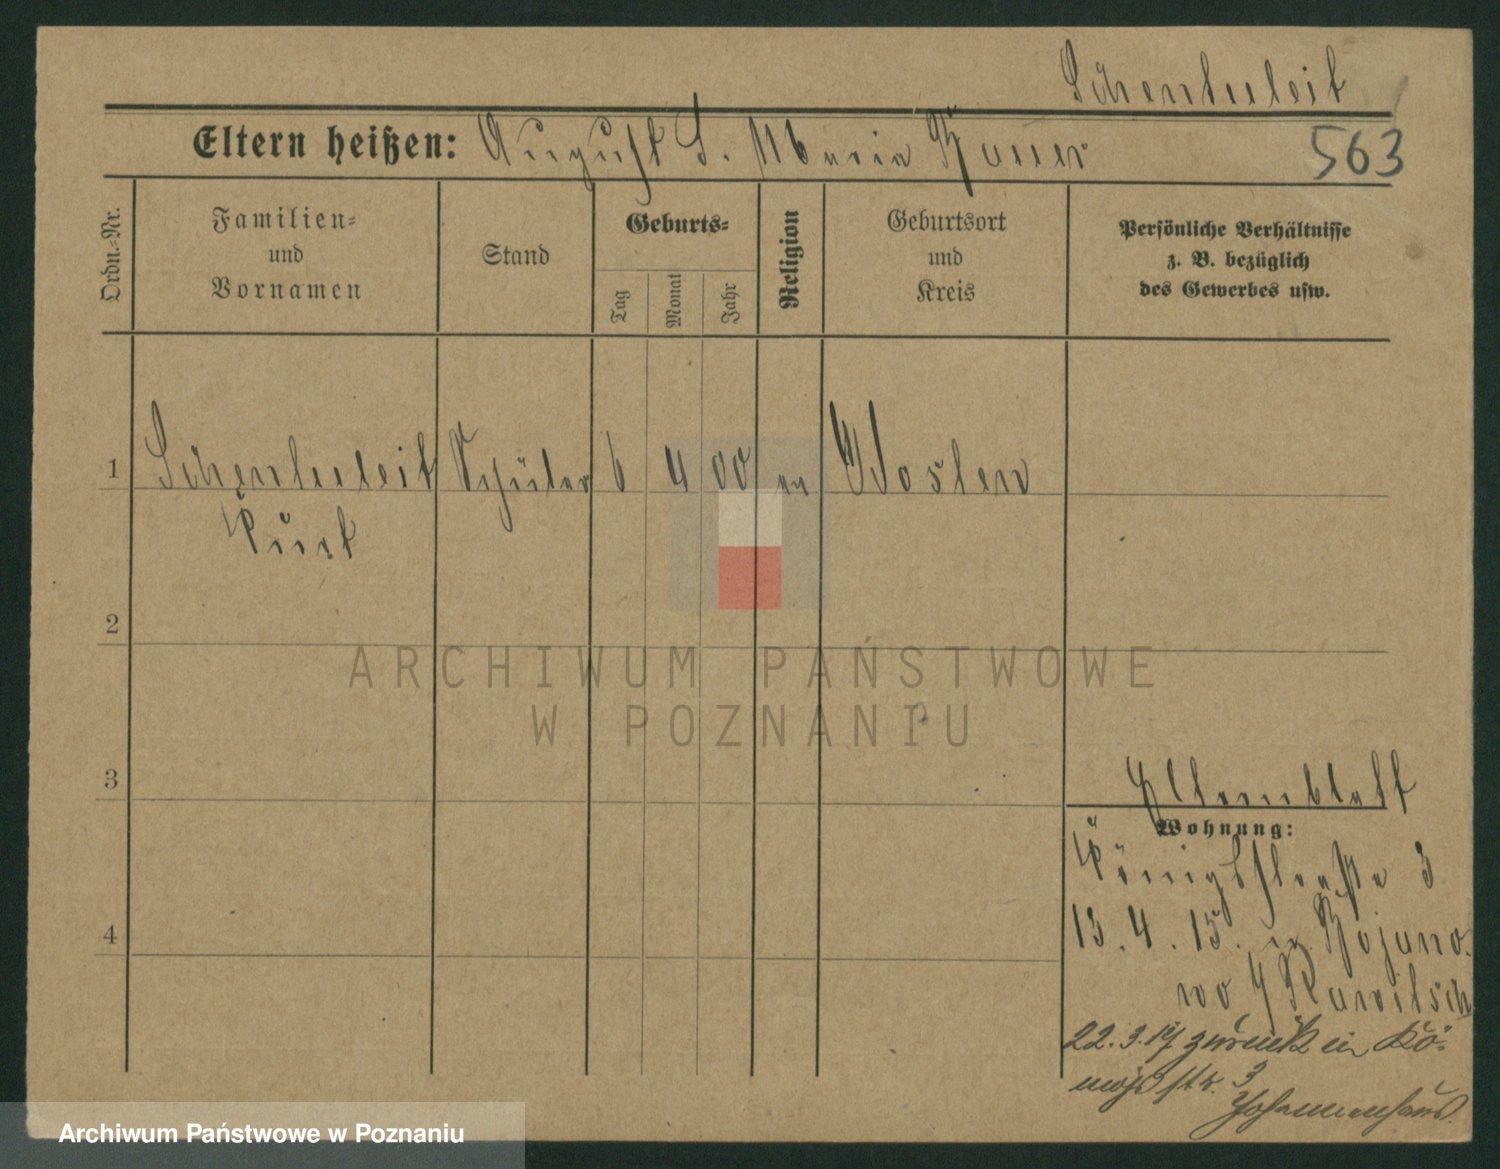 Schenkuleit
Eltern heißen: August S. Maria Bauer
563
Ordn.-Nr.
Familien-
und
Vornamen
Stand
Geburts-
Tag
Monat
Jahr
Religion
Geburtsort
und
Kreis
Persönliche Verhältnisse
z. B. bezüglich
des Gewerbes usw.
1
Schenkuleit Schüler 6 4 00 ev
Kurt
2
3
4
Elternblatt
Wohnung:
Königstraße 3
13. 4. 15. in Bojano-
wo Rawitsch
22. 3. 17 zurück in Kö-
nigstr. 3
Johannenhaus
ARCHIWUM PAŃSTWOWE
W POZNANIU
Archiwum Państwowe w Poznaniu